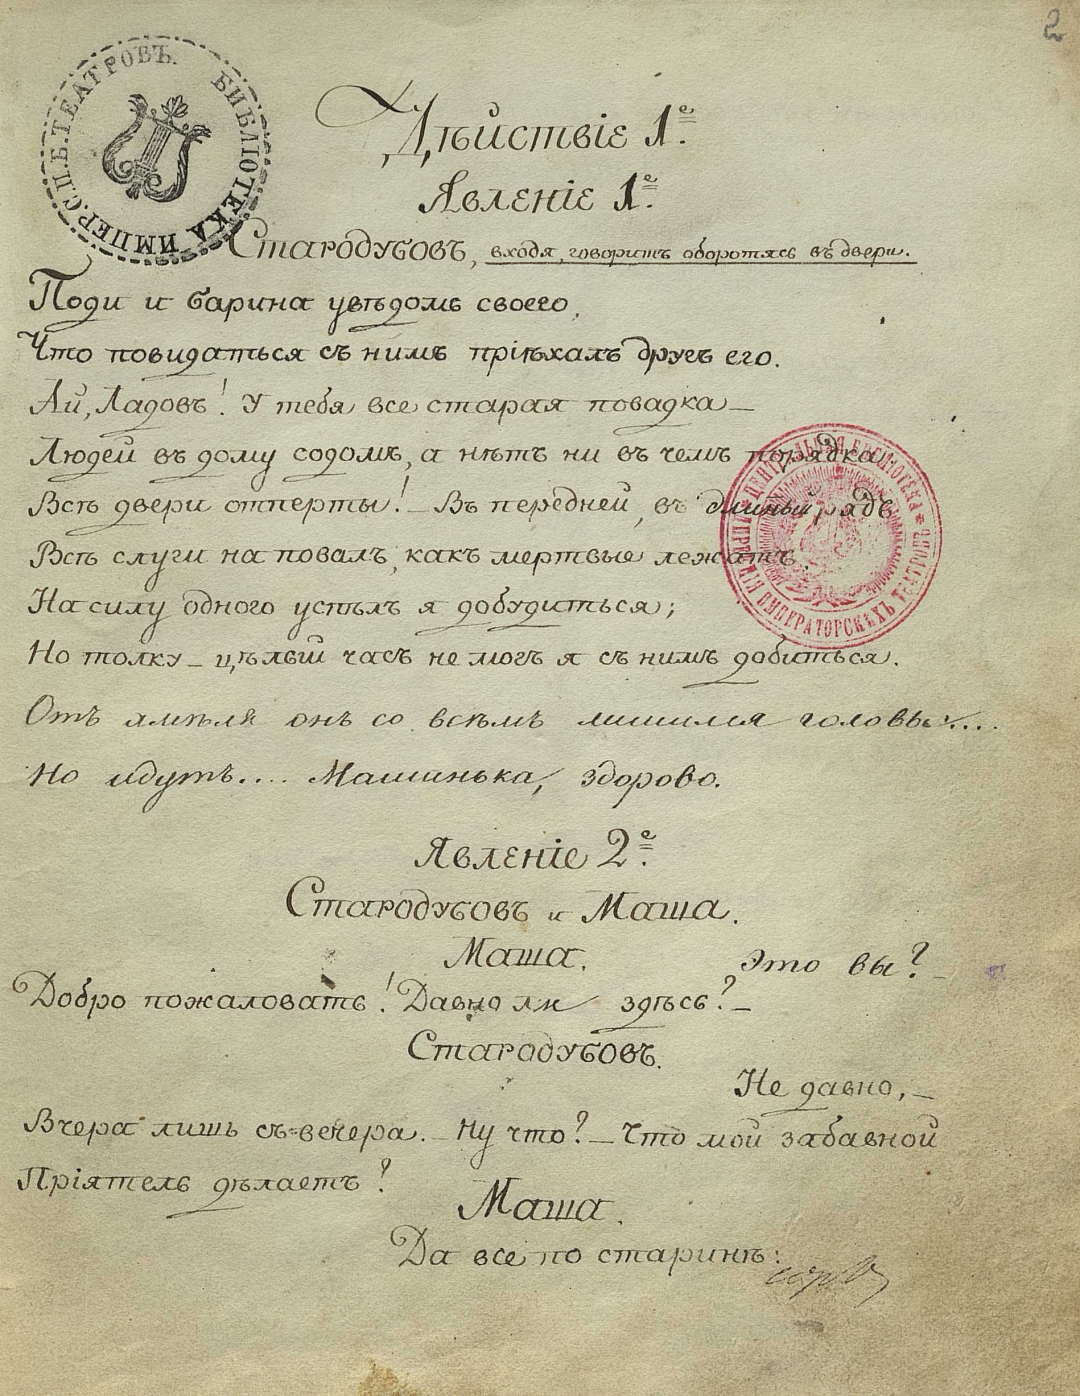 2
БИБЛІОТЕКА ИМПЕР. С.П.Б. ТЕАТРОВЪ.
Дѣйствіе 1е.
Явленіе 1е.
Стародубовъ, входя, говоритъ оборотясь въ двери.
Поди и барина увѣдомь своего,
Что повидаться съ нимъ пріѣхалъ другъ его.
Ай, Ладовъ! У тебя все старая повадка —
Людей въ дому содомъ, а нѣтъ ни въ чемъ порядка
Всѣ двери отперты! — Въ передней, въ длинный рядъ
Всѣ слуги на повалъ, какъ мертвые лежатъ.
На силу одного успѣлъ я добудиться;
Но толку — цѣлый часъ не могъ я съ нимъ добиться.
Отъ хмѣля онъ со всѣмъ лишился головы....
Но идутъ.... Машинька, здорово.
Явленіе 2е.
Стародубовъ и Маша.
Маша.
Это вы? —
Добро пожаловать! Давно ли здѣсь? —
Стародубовъ.
Не давно, —
Вчера лишь съ-вечера. — Ну что? — Что мой забавной
Пріятель дѣлаетъ?
Маша.
Да все по старинѣ:
ЦЕНТРАЛЬНАЯ БИБЛІОТЕКА ИМПЕРАТОРСКИХЪ ТЕАТРОВЪ